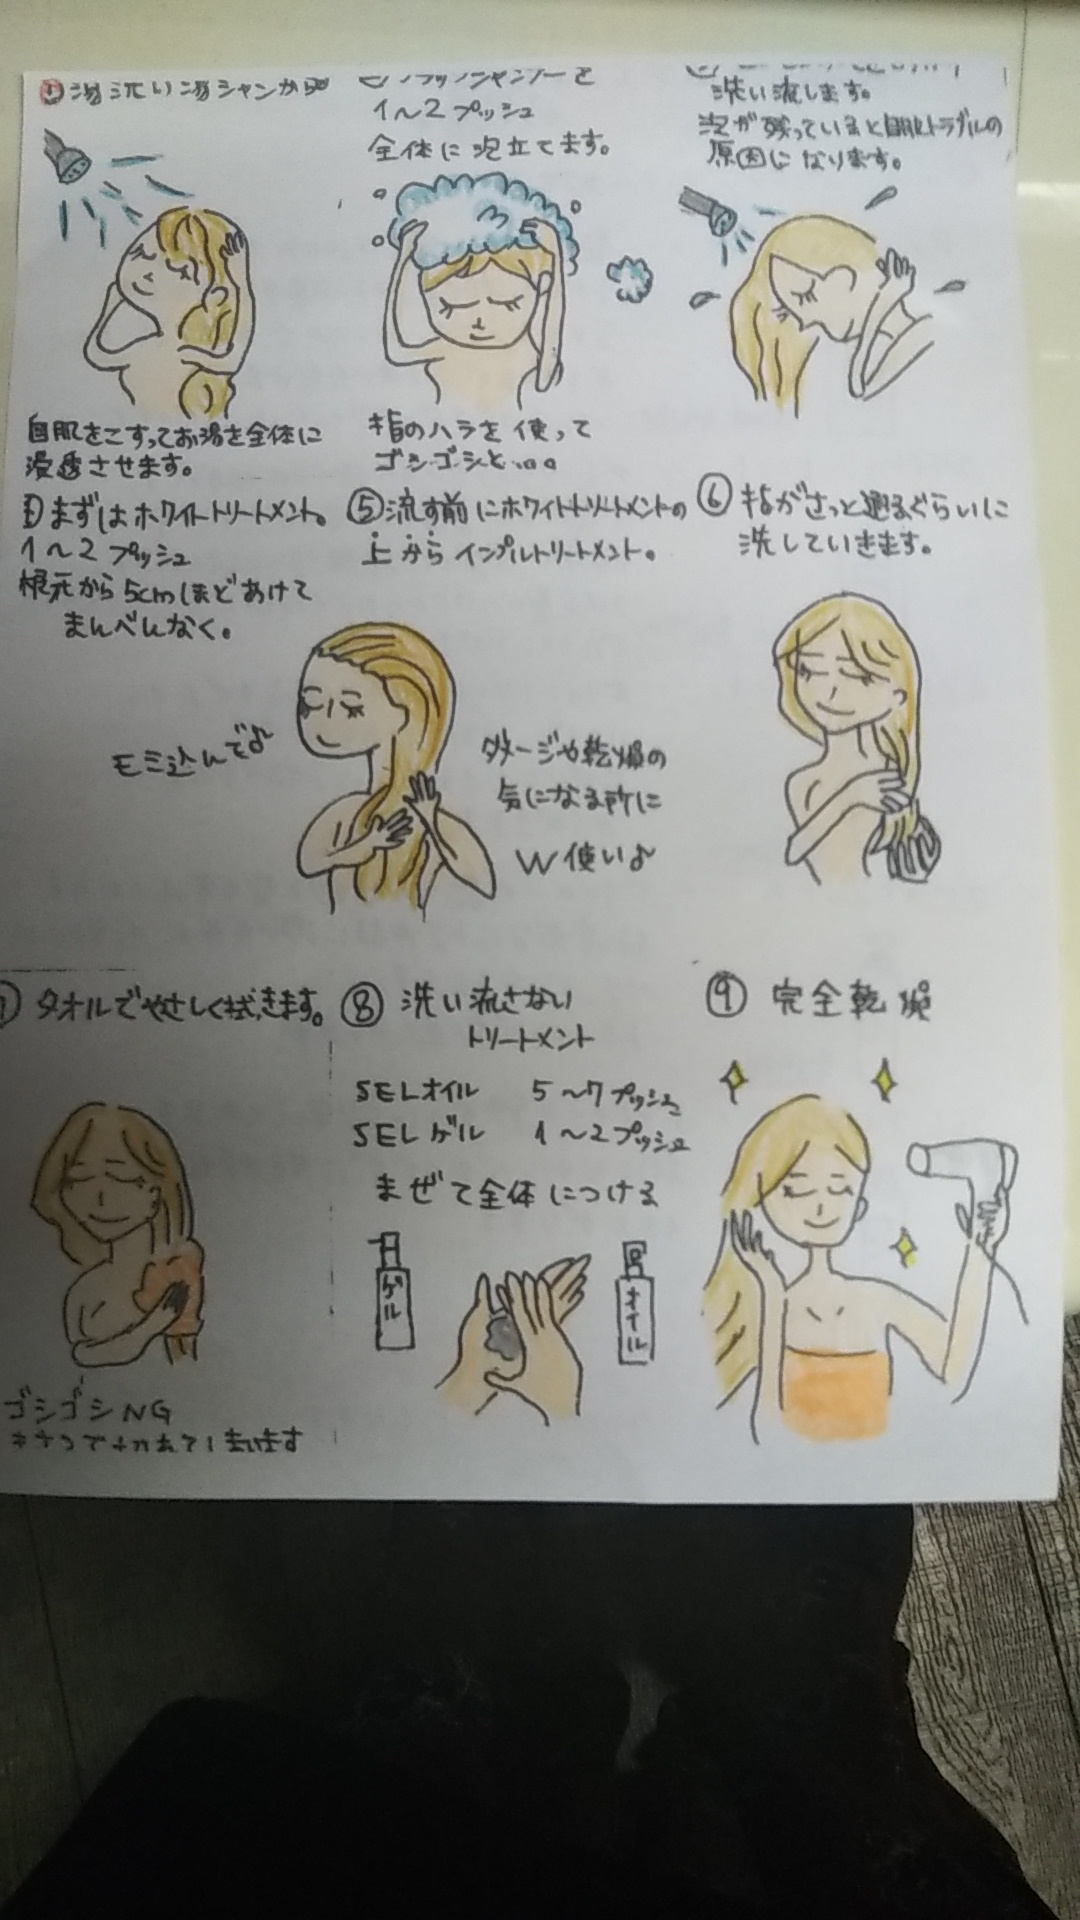 ①湯洗い湯シャンから
1～2プッシュ
全体に泡立てます。
洗い流します。
泡が残っていると トラブルの
原因になります。
自肌をこすってお湯を全体に
浸透させます。
指のハラを使って
ゴシゴシと...
まずはホワイトトリートメント。
1～2プッシュ
根元から5cmほどあけて
まんべんなく。
⑤流す前にホワイトトリートメントの
上からインプルトリートメント。
⑥指がさっと通るぐらいに
洗していきます。
モミ込んで♪
ダメージや乾燥の
気になる所に
W使い♪
タオルでやさしく拭きます。
ゴシゴシNG
⑧洗い流さない
トリートメント
SELオイル 5～7プッシュ
SELゲル 1～2プッシュ
まぜて全体につける
ゲル
オイル
⑨完全乾燥